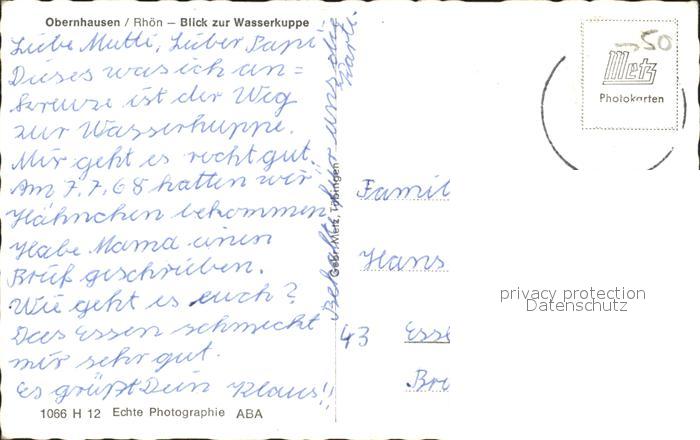 Obernhausen / Rhön – Blick zur Wasserkuppe
Liebe Mutti, Lieber Papi!
Dieses was ich an=
kreuze ist der Weg
zur Wasserkuppe.
Mir geht es recht gut.
Am 7.7.68 hatten wir
Hähnchen bekommen
Habe Mama einen
Brief geschrieben.
Wie geht es euch?
Das Essen schmeckt
mir sehr gut.
Es grüßt Dein Klaus!!
1066 H 12 Echte Photographie ABA
für uns die
Karte
Gebr. Metz, Tübingen
50
Metz
Photokarten
Famil
Hans
privacy protection
Datenschutz
43 Esse
Bre